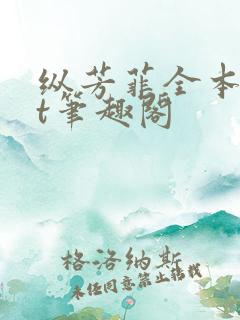 纵芳菲全本
t笔趣阁
格洛纳斯
未经同意禁止转载